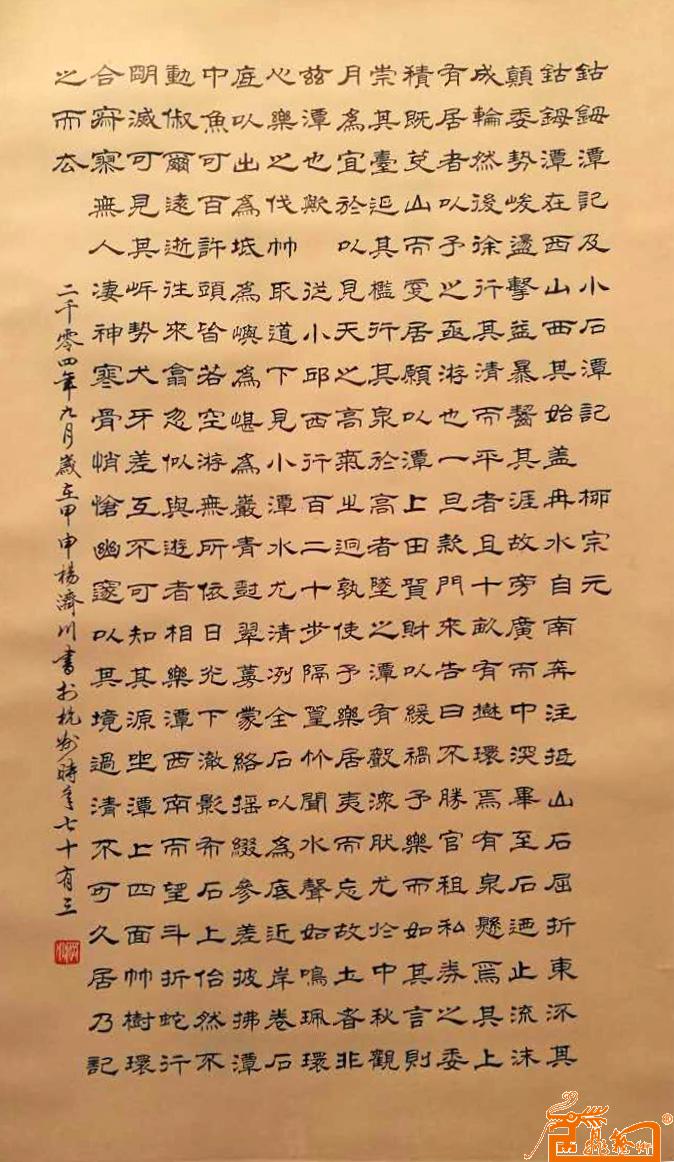 鈷鉧潭記及小石潭記 柳宗元
鈷鉧潭在西山西其始盖冉水自南奔注抵山石屈折東流其
顛委勢峻盪擊益暴齧其涯故旁廣而中深畢至石迺止流沫
成輪然後徐行其清而平者且十畝有樹環焉有泉懸焉其上
有居者以予之亟游也一旦款門來告曰不勝官租私券之委
積既芟山而更居願以潭上田貿財以緩禍予樂而如其言則
崇其臺延其檻行其泉於高者墜之潭有聲潀然尤於中秋觀
月為宜於以見天之高氣之迥孰使予樂居夷而忘故土者非
茲潭也歟 從小邱西行百二十步隔篁竹聞水聲如鳴珮環
心樂之伐竹取道下見小潭水尤清冽全石以為底近岸卷石
底以出為坻為嶼為嵁為巖青樹翠蔓蒙絡搖綴參差披拂潭
中魚可百許頭皆若空游無所依日光下澈影布石上佁然不
動俶爾遠逝往來翕忽似與遊者相樂潭西南而望斗折蛇行
明滅可見其岸勢犬牙差互不可知其源坐潭上四面竹樹環
合寂寥無人凄神寒骨悄愴幽邃以其境過清不可久居乃記
之而去
二千零四年九月歲在甲申楊濟川書於杭州時年七十有三